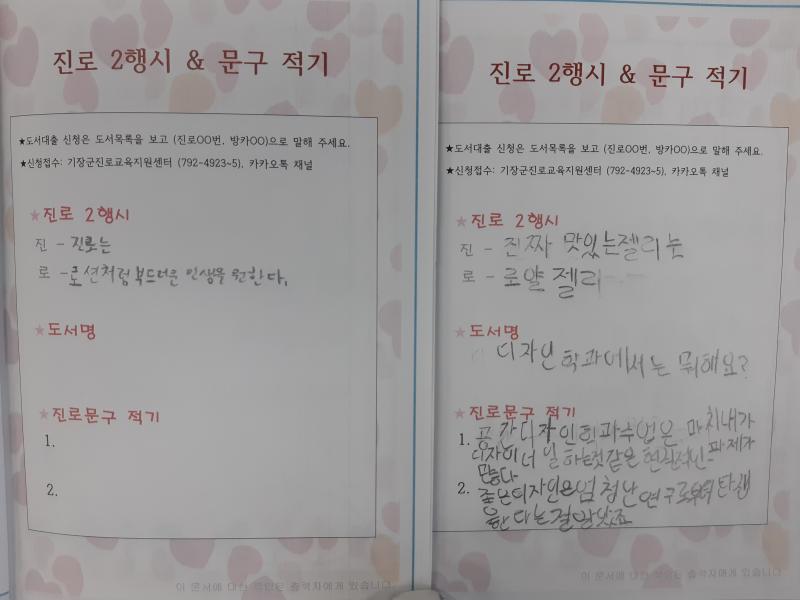 진로 2행시 & 문구 적기
★도서대출 신청은 도서목록을 보고 (진로OO번, 방카OO)으로 말해 주세요.
★신청접수: 기장군진로교육지원센터 (792-4923~5), 카카오톡 채널
★진로 2행시
진 - 진로는
로 - 로션처럼 부드러운 인생을 원한다.
★도서명
★진로문구 적기
1.
2.
이 문서에 대한 책임은 출력자에게 있습니다
진로 2행시 & 문구 적기
★도서대출 신청은 도서목록을 보고 (진로OO번, 방카OO)으로 말해 주세요.
★신청접수: 기장군진로교육지원센터 (792-4923~5), 카카오톡 채널
★진로 2행시
진 - 진짜 맛있는젤리는
로 - 로얄 젤리
★도서명
디자인 학과에서는 뭐해요?
★진로문구 적기
1. 공간디자인학과수업은 마치내가
디자이너 일 하는것같은 현실적인 과제가
많다
2. 좋은디자인은엄청난 연구로부터 탄생
을한다는걸알았죠
이 문서에 대한 책임은 출력자에게 있습니다